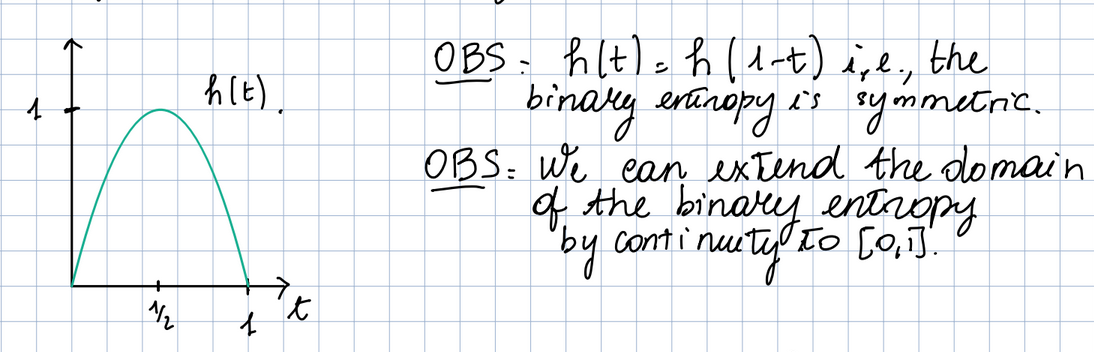 h(t).
1
1/2
1
t
OBS: h(t) = h(1-t) i.e., the
binary entropy is symmetric.
OBS: We can extend the domain
of the binary entropy
by continuity to [0,1].